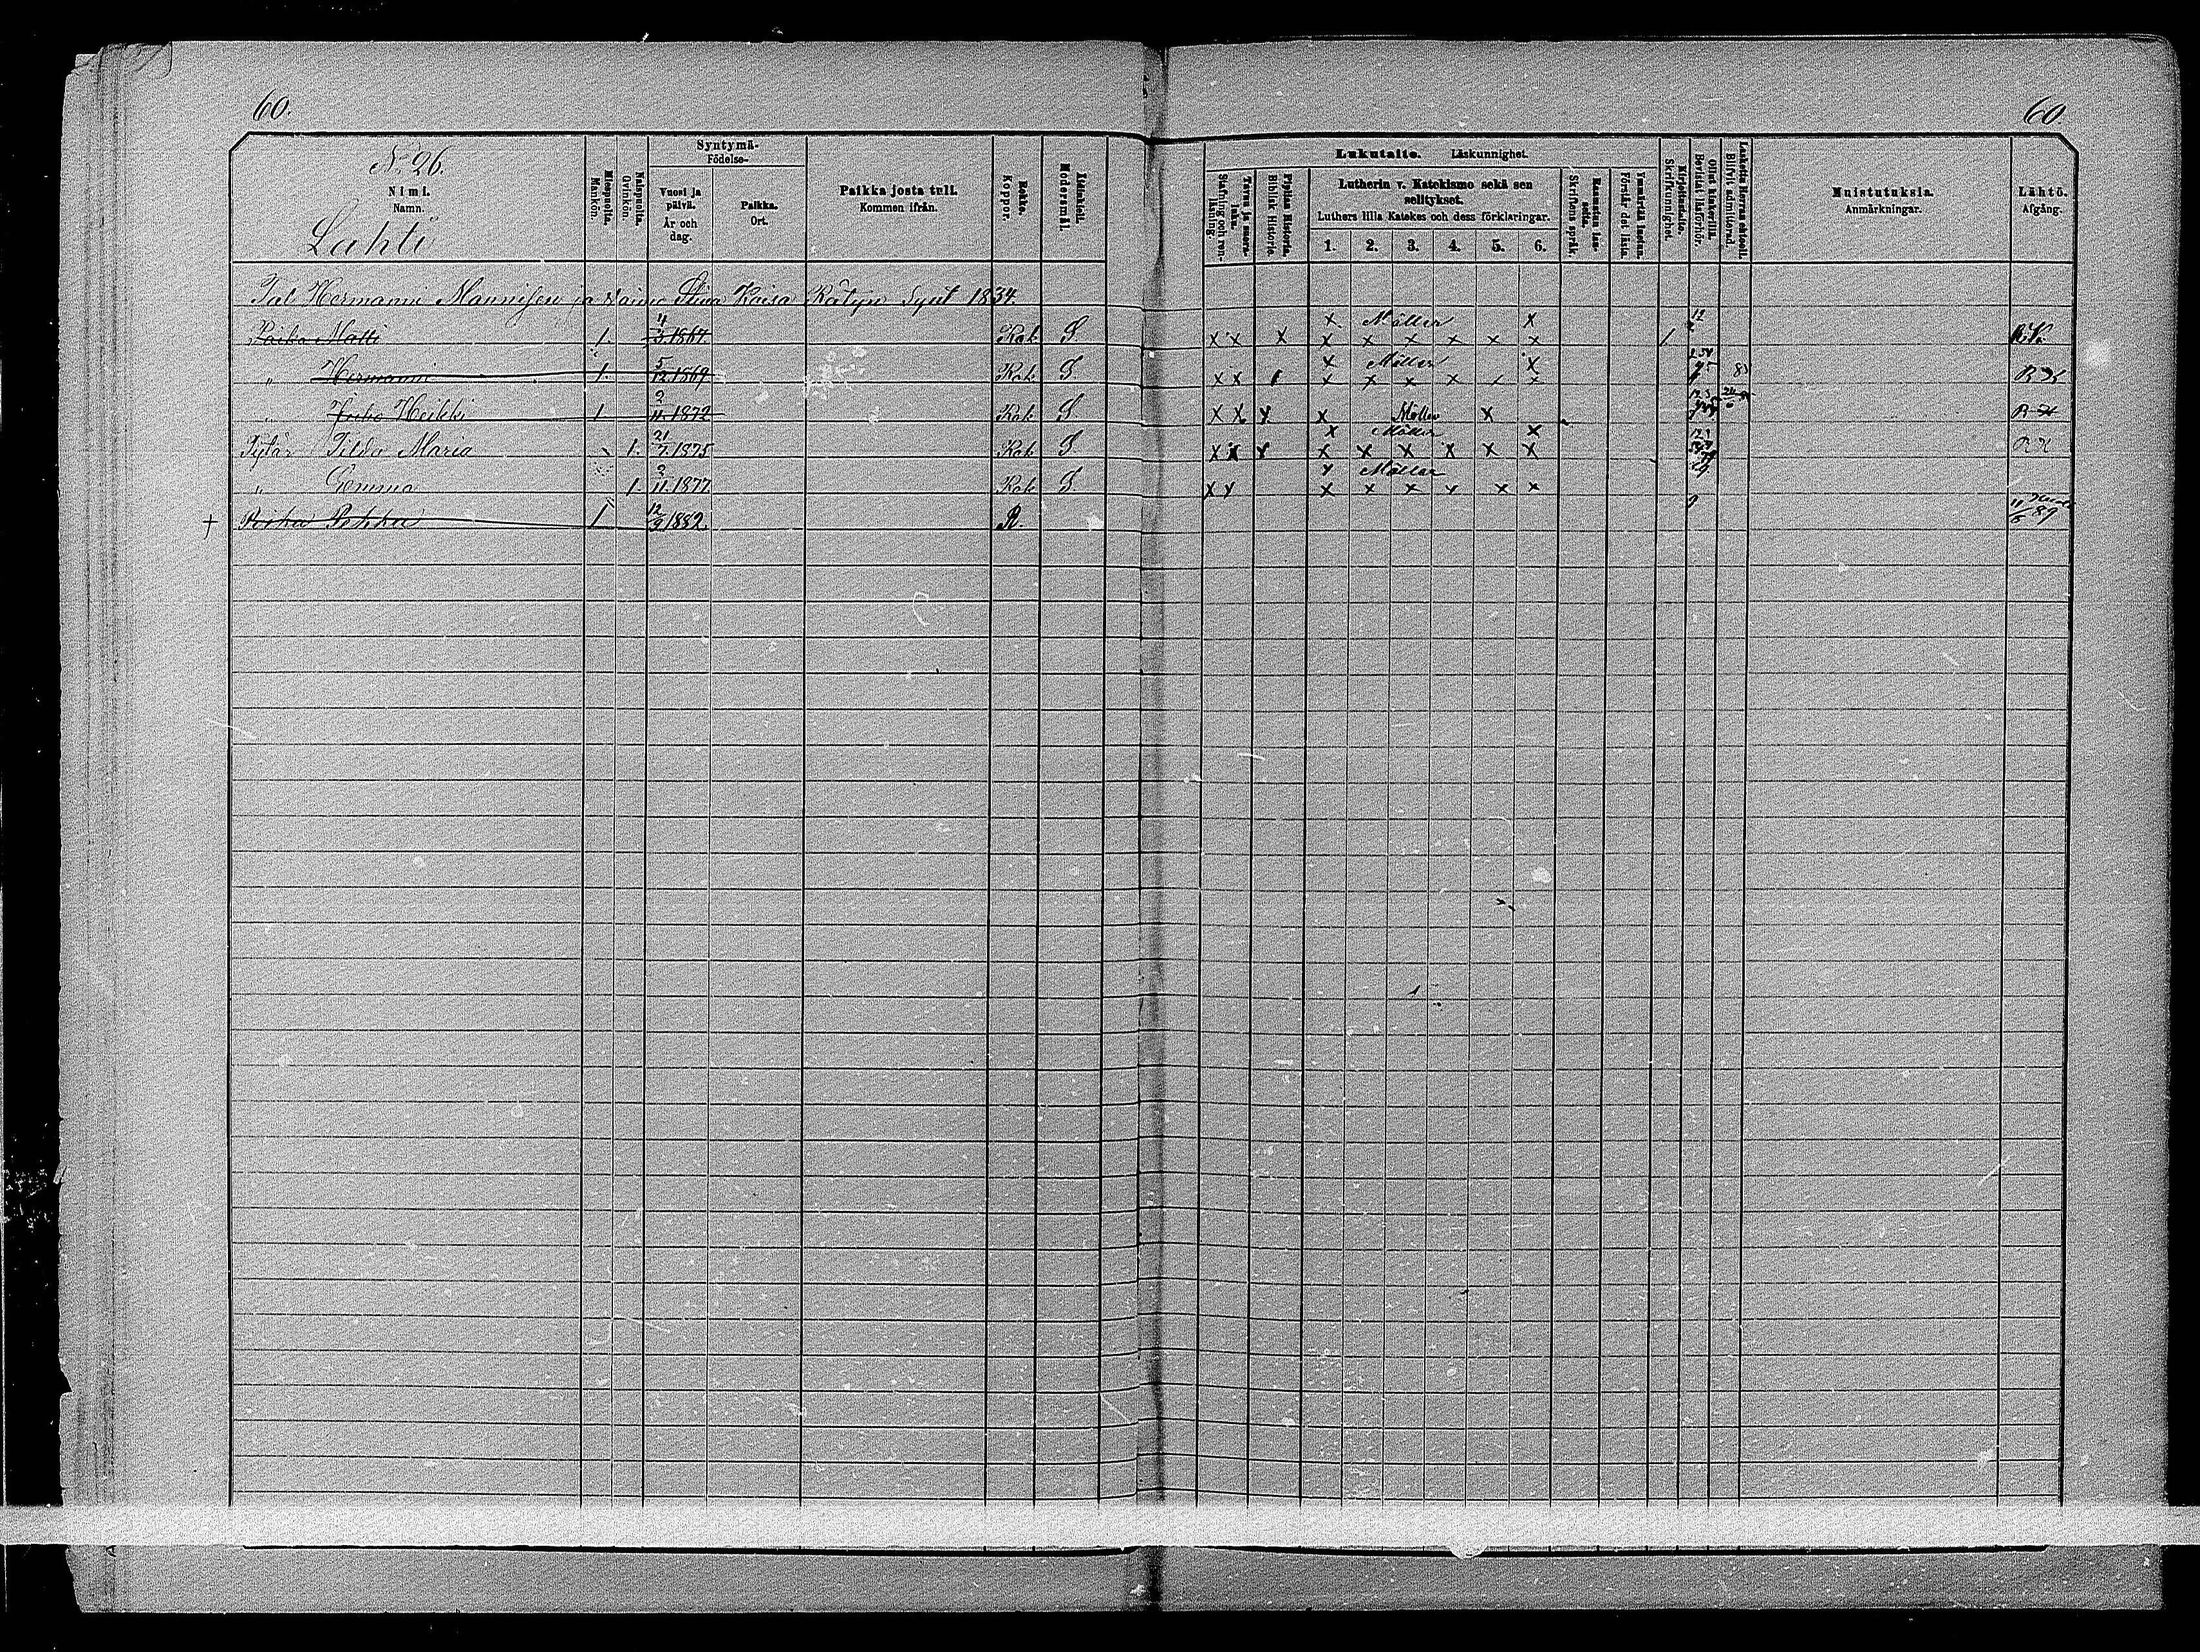 60. 60.
No 26.
Nimi.
Namn.
Lahti
Miespuolta.
Mankön.
Naispuolta.
Qvinkön.
Syntymä-
Födelse-
Vuosi ja
päivä.
År och
dag.
Paikka.
Ort.
Paikka josta tuli.
Kommen ifrån.
Rokko.
Koppor.
Äidinkieli.
Modersmål.
Lukutaito. Läskunnighet.
Tavuu ja suora-
luku.
Stafning och ren-
läsning.
Piplian Historia.
Biblisk Historie.
Lutherin v. Katekismo sekä sen
selitykset.
Luthers lilla Katekes och dess förklaringar.
1. 2. 3. 4. 5. 6.
Raamatun lau-
seita.
Skriftens språk.
Ymmärtää luetun.
Förstår det lästa.
Kirjoitustaito.
Skrifkunnighet.
Ollut kinkerillä.
Bevistat läsförhör.
Laskettu Herran ehtoolle.
Blifvit admitterad.
Muistutuksia.
Anmärkningar.
Lähtö.
Afgång.
Tal Hermanni ja vaimo Stina Kaisa Synt 1834.
Poika Matti 1. 4/3 1867 Rok S. x x x x Möller x x x x x x x / 12 R.K.
" Hermanni 1. 5/12 1869 Rok S x x 1 x Möller x x x x x x x 85 R K
" Juho Heikki 1 2/11 1872 Rok S x x x x Möller x R K
Tytär Tilda Maria 1. 21/7 1875 Rok S x x x x Möller x x x x x x x R K
" Emma 1. 2/11 1877 Rok S. x x x Möller x x x x x x
+ Poika Pekka 1 12/9 1882. R. 11/5 89